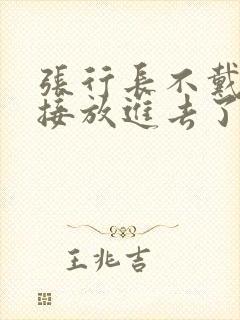 張行長不戴
接放進去了
王兆吉